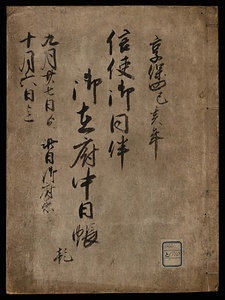 享保四己亥年
信使御同伴
御在府中日帳
九月廿七日ゟ
十月六日迄
乾